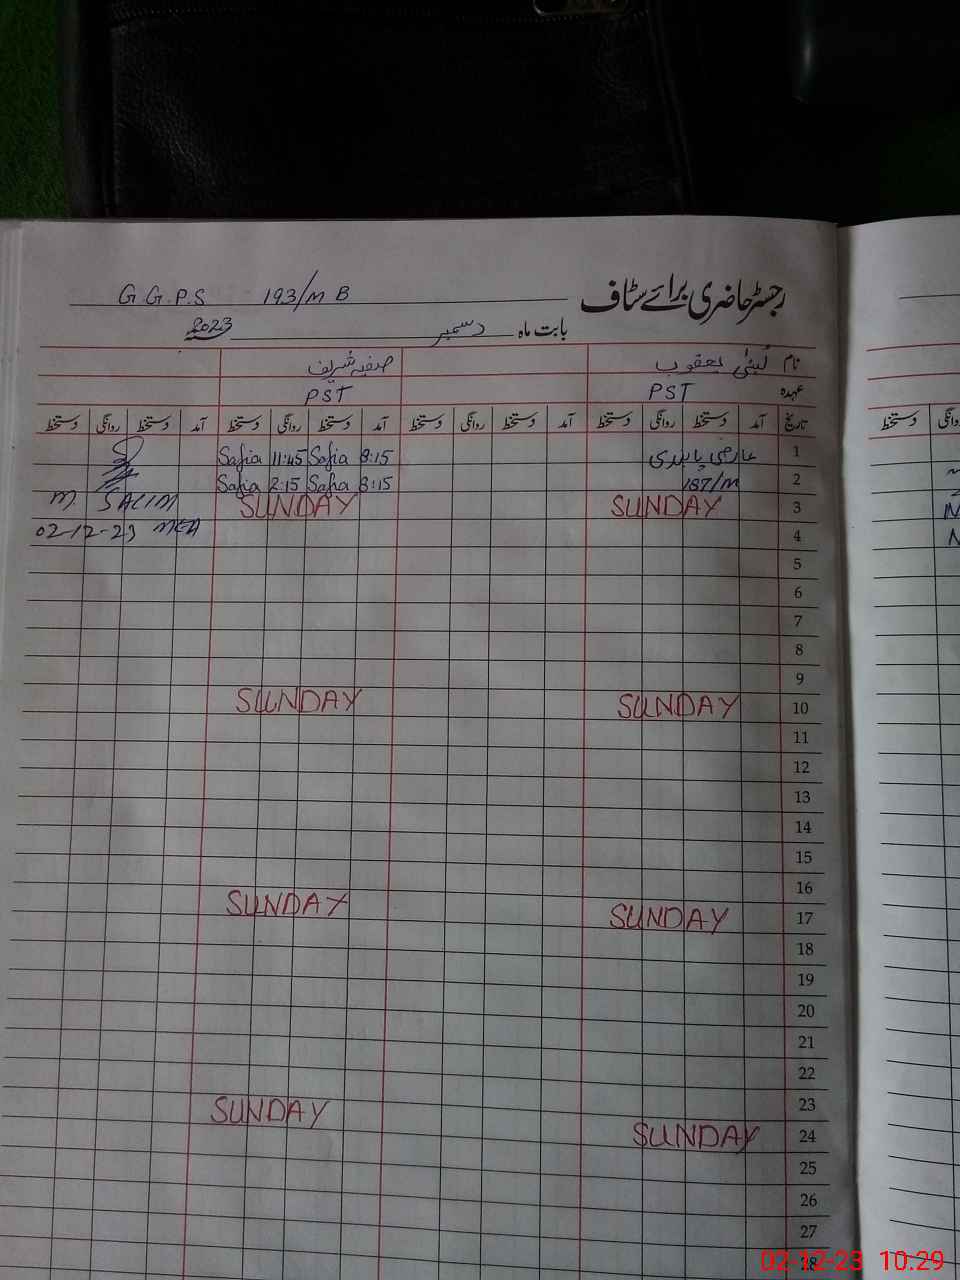 G.G.P.S 193/M B
رجسٹر حاضری برائے سٹاف
بابت ماہ دسمبر 2023
نام لبنیٰ یعقوب صفیہ شریف
عہدہ PST PST
تاریخ آمد دستخط روانگی دستخط آمد دستخط روانگی دستخط آمد دستخط روانگی دستخط آمد دستخط روانگی دستخط
1 عارضی پابندی 8:15 Safia 11:45 Safia
2 187/M 8:15 Safia 2:15 Safia
3 SUNDAY SUNDAY M. SALIM
4 02-12-23 MEA
5
6
7
8
9
10 SUNDAY SUNDAY
11
12
13
14
15
16
17 SUNDAY SUNDAY
18
19
20
21
22
23
24 SUNDAY SUNDAY
25
26
27
28
02-12-23 10.29